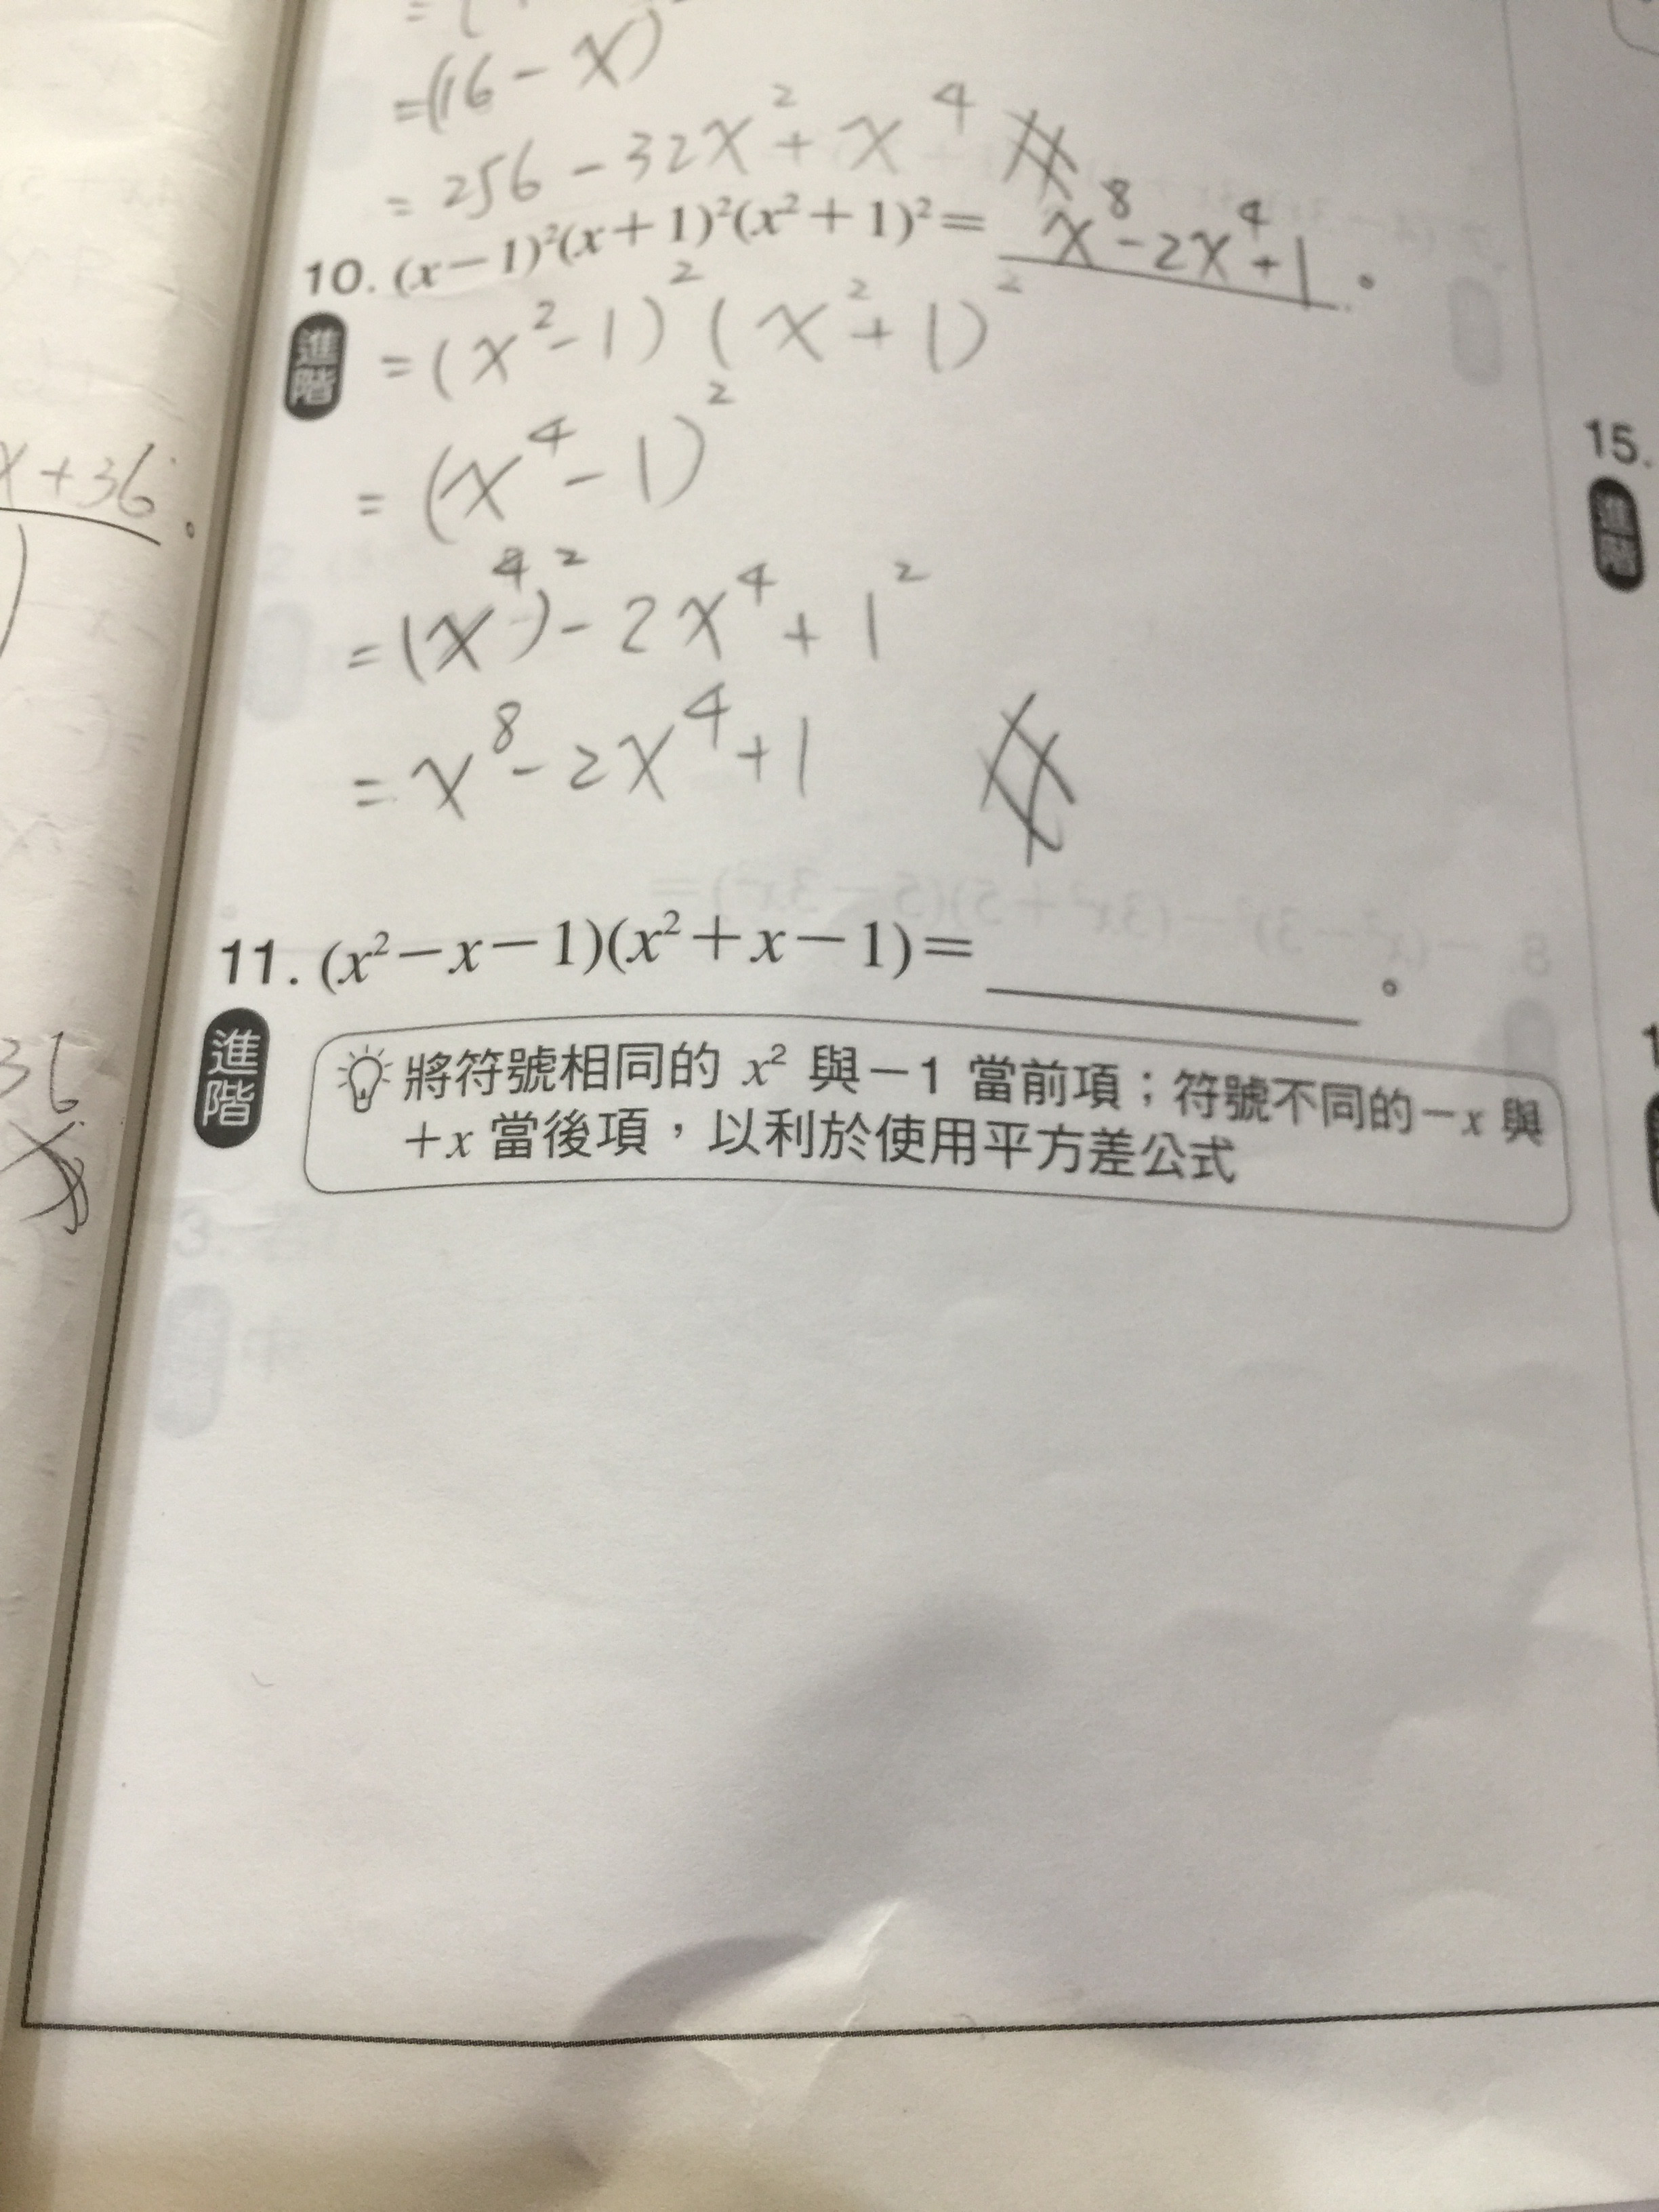 =(16-x)
=256-32x²+x⁴
10. (x-1)²(x+1)²(x²+1)²= x⁸-2x⁴+1 。
進階
=(x²-1)²(x²+1)²
=(x⁴-1)²
=(x⁴)²-2x⁴+1²
=x⁸-2x⁴+1
11. (x²-x-1)(x²+x-1)= 。
進階
將符號相同的 x² 與-1 當前項；符號不同的-x 與
+x 當後項，以利於使用平方差公式
x+36 。
36
15.
進階